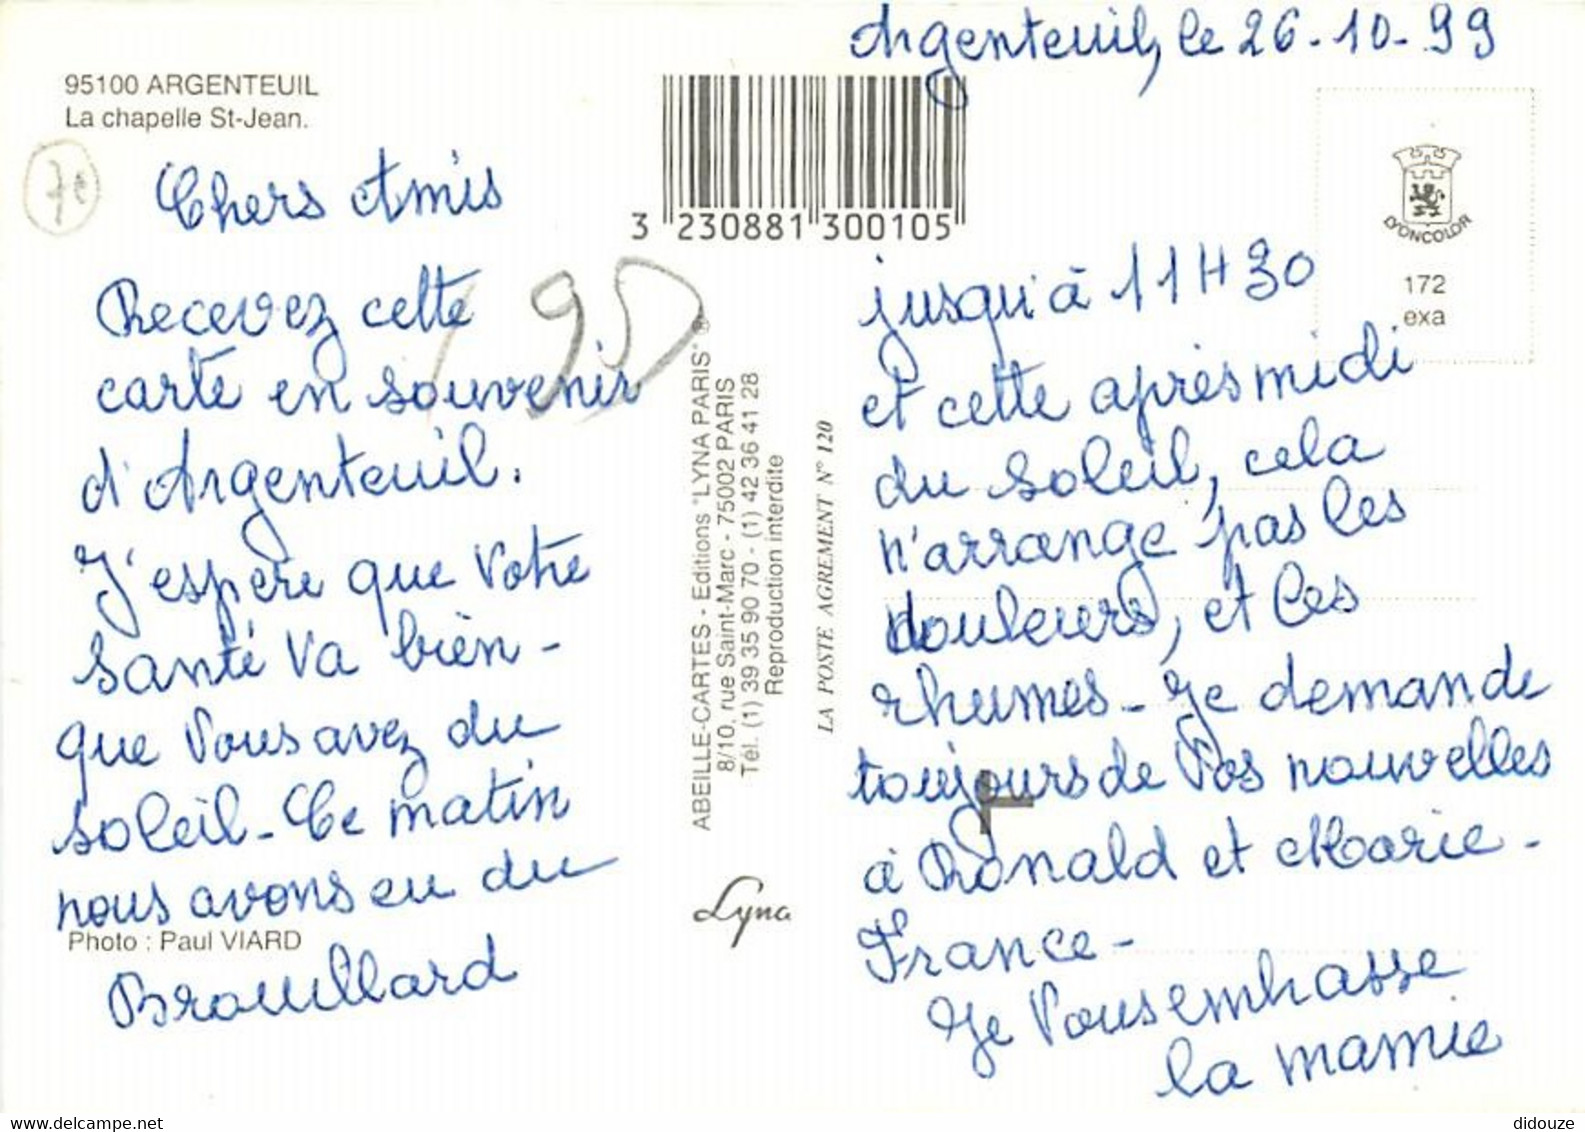 Argenteuil, le 26-10-99
95100 ARGENTEUIL
La chapelle St-Jean.
7e
Chers Amis
Recevez cette
carte en souvenir
d'Argenteuil.
J'espère que votre
santé va bien -
que vous avez du
soleil - Ce matin
nous avons eu du
Brouillard
Photo : Paul VIARD
3 230881 300105
95
ABEILLE-CARTES - Editions "LYNA PARIS" ®
8/10, rue Saint-Marc - 75002 PARIS
Tél. (1) 39 35 90 70 - (1) 42 36 41 28
Reproduction interdite
LA POSTE AGREMENT N° 120
Lyna
LYONCOLOR
172
exa
jusqu'à 11H30
et cette après midi
du soleil, cela
n'arrange pas les
douleurs, et les
rhumes - Je demande
toujours de vos nouvelles
à Ronald et Marie -
France -
Je vous embrasse
la mamie
www.delcampe.net
didouze